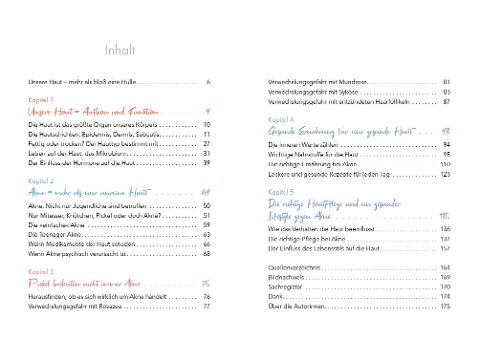 Inhalt
Unsere Haut – mehr als bloß eine Hülle 6
Kapitel 1
Unsere Haut – Aufbau und Funktion 9
Die Haut ist das größte Organ unseres Körpers 10
Die Hautschichten: Epidermis, Dermis, Subcutis 11
Fettig oder trocken? Der Hauttyp bestimmt mit 27
Leben auf der Haut: das Mikrobiom 31
Der Einfluss der Hormone auf die Haut 39
Kapitel 2
Akne – mehr als nur unreine Haut 49
Akne: Nicht nur Jugendliche sind betroffen 50
Nur Mitesser, Knötchen, Pickel oder doch Akne? 51
Die zwölf Akne 59
Die Teenager-Akne 65
Wenn Medikamente der Haut schaden 66
Wenn Akne psychisch verursacht ist 68
Kapitel 3
Pickel bedeuten nicht immer Akne 75
Herausfinden, ob es sich wirklich um Akne handelt 76
Verwechslungsgefahr mit Rosazea 77
Verwechslungsgefahr mit Mundrose 81
Verwechslungsgefahr mit Sykose 85
Verwechslungsgefahr mit entzündeten Haarfollikeln 87
Kapitel 4
Gesunde Ernährung für eine gesunde Haut 93
Die inneren Werte zählen 94
Wichtige Nährstoffe für die Haut 95
Die richtige Ernährung bei Akne 110
Leckere und gesunde Rezepte für jeden Tag 123
Kapitel 5
Die richtige Hautpflege und ein gesunder
Lifestyle gegen Akne 135
Wie das Verhalten die Haut beeinflusst 136
Die richtige Pflege bei Akne 137
Der Einfluss des Lebensstils auf die Haut 157
Quellenverzeichnis 164
Bildnachweis 169
Sachregister 170
Dank 174
Über die Autorinnen 175